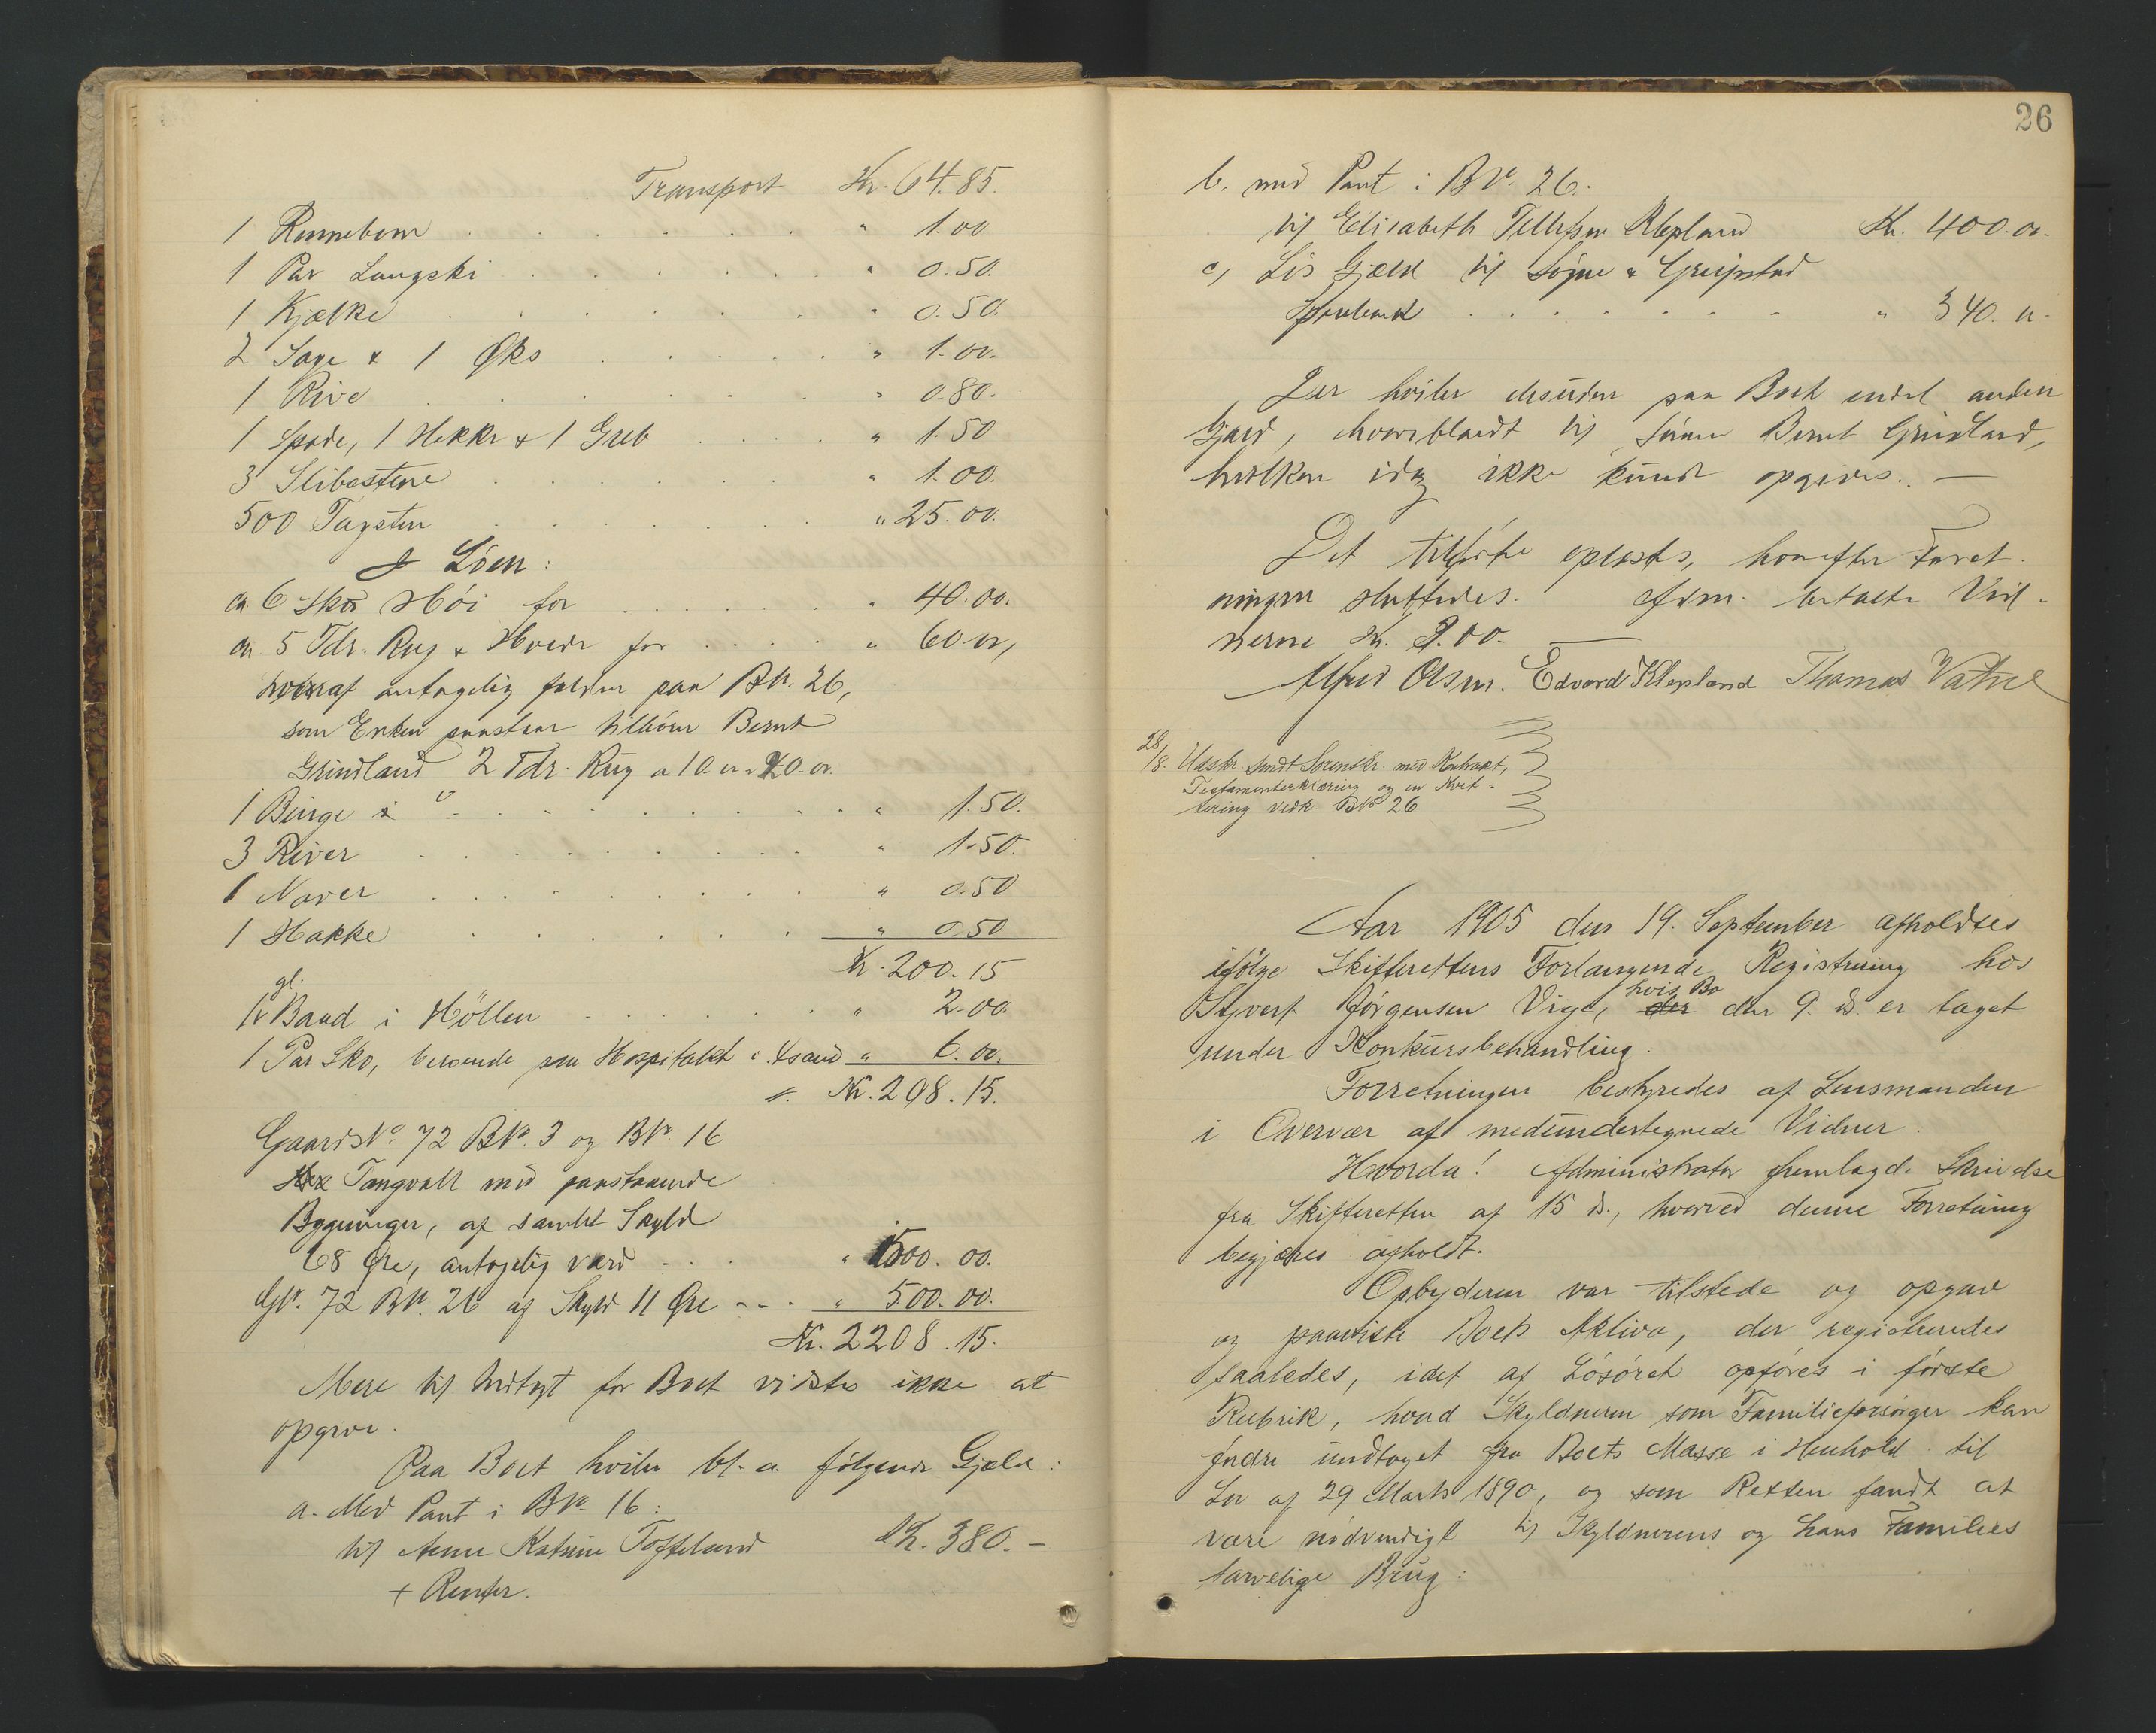 Transport Kr. 64.85.
1 Rennebom . . . . . . " 1.00
1 Par Langski . . . . . . " 0.50.
1 Kjælke . . . . . . " 0.50.
2 Sage & 1 Øks . . . . . " 1.00.
1 Rive . . . . . . " 0.80.
1 Spade, 1 Hakke & 1 Greb . . . . " 1.50
3 Slibestene . . . . . . " 1.00.
500 Tagsten . . . . . . " 25.00.
I Löen:
ca. 6 Skp Höi for . . . . . . " 40.00.
ca. 5 Tdr. Rug & Havre for . . . . " 60 00,
hvoraf antagelig falden paa BN. 26,
som Enken paastaar tilhörer Bernt
Grindland 2 Tdr. Rug a 10.00 = 20.00.
1 Binge . . . . . . . " 1.50.
3 River . . . . . . . " 1.50.
1 Naver . . . . . . . " 0.50
1 Hakke . . . . . . " 0.50
Kr. 200.15
gl.
1 Baad i Höllen . . . . . . " 2.00.
1 Par Sko, beroende paa Hospitalet i Xsand " 6.00.
Kr. 208.15.
Gaards No. 72 BN. 3 og BN. 16
Tangvall med paastaaende
Bygninger, af samlet Skyld
68 Øre, antagelig værd - . . " 1500.00.
GN. 72 BN. 26 af Skyld 11 Øre - - . " 500.00.
Kr. 2208.15.
Mere til Indtægt for Boet vidstes ikke at
opgive.
Paa Boet hviler bl. a. følgende Gjæld:
a. Med Pant i BN. 16:
til Anne Katrine Tofteland Kr. 380.-
+ Renter.
26
b. med Pant i BN. 26.
til Elisabeth Tellefsen Klepland Kr. 400.00.
c, Lös Gjæld til Søgne & Greipstad
Sparebank . . . . . . . " 340.00
Der hviler desuden paa Boet endel anden
Gjæld, hvoriblandt til Sönnen Bernt Grindland,
hvilken idag ikke kunde opgives. —
Det tilförte oplæstes, hvorefter Forret-
ningen sluttedes. Adm. betalte Vid-
nerne Kr. 2.00. —
Alfred Olsen. Edvard Klepland Thomas Vatne
28/8. Udskr. sendt Sorenskr. med Kontrakt,
Testamenterklæring og en Kvit-
tering vedk. BN 26
Aar 1905 den 19. September afholdtes
ifölge Skifterettens Forlangende Registrering hos
Syvert Jörgensen Vige, der hvis Bo den 9. ds. er taget
under Konkursbehandling.
Forretningen bestyredes af Lensmanden
i Overvær af medundertegnede Vidner.
Hvorda! Administrator fremlagde Skrivelse
fra Skifteretten af 15 ds., hvorved denne Forretning
begjæres afholdt.
Opbyderen var tilstede og opgav
og paaviste Boets Aktiva, der registreredes
saaledes, idet af Lösöret opföres i förste
Rubrik, hvad Skyldneren som Familieforsörger kan
fordre undtaget fra Boets Masse i Henhold til
Lov af 29 Marts 1890, og som Retten fandt at
være nödvendigt til Skyldnerens og hans Families
tarvelige Brug: